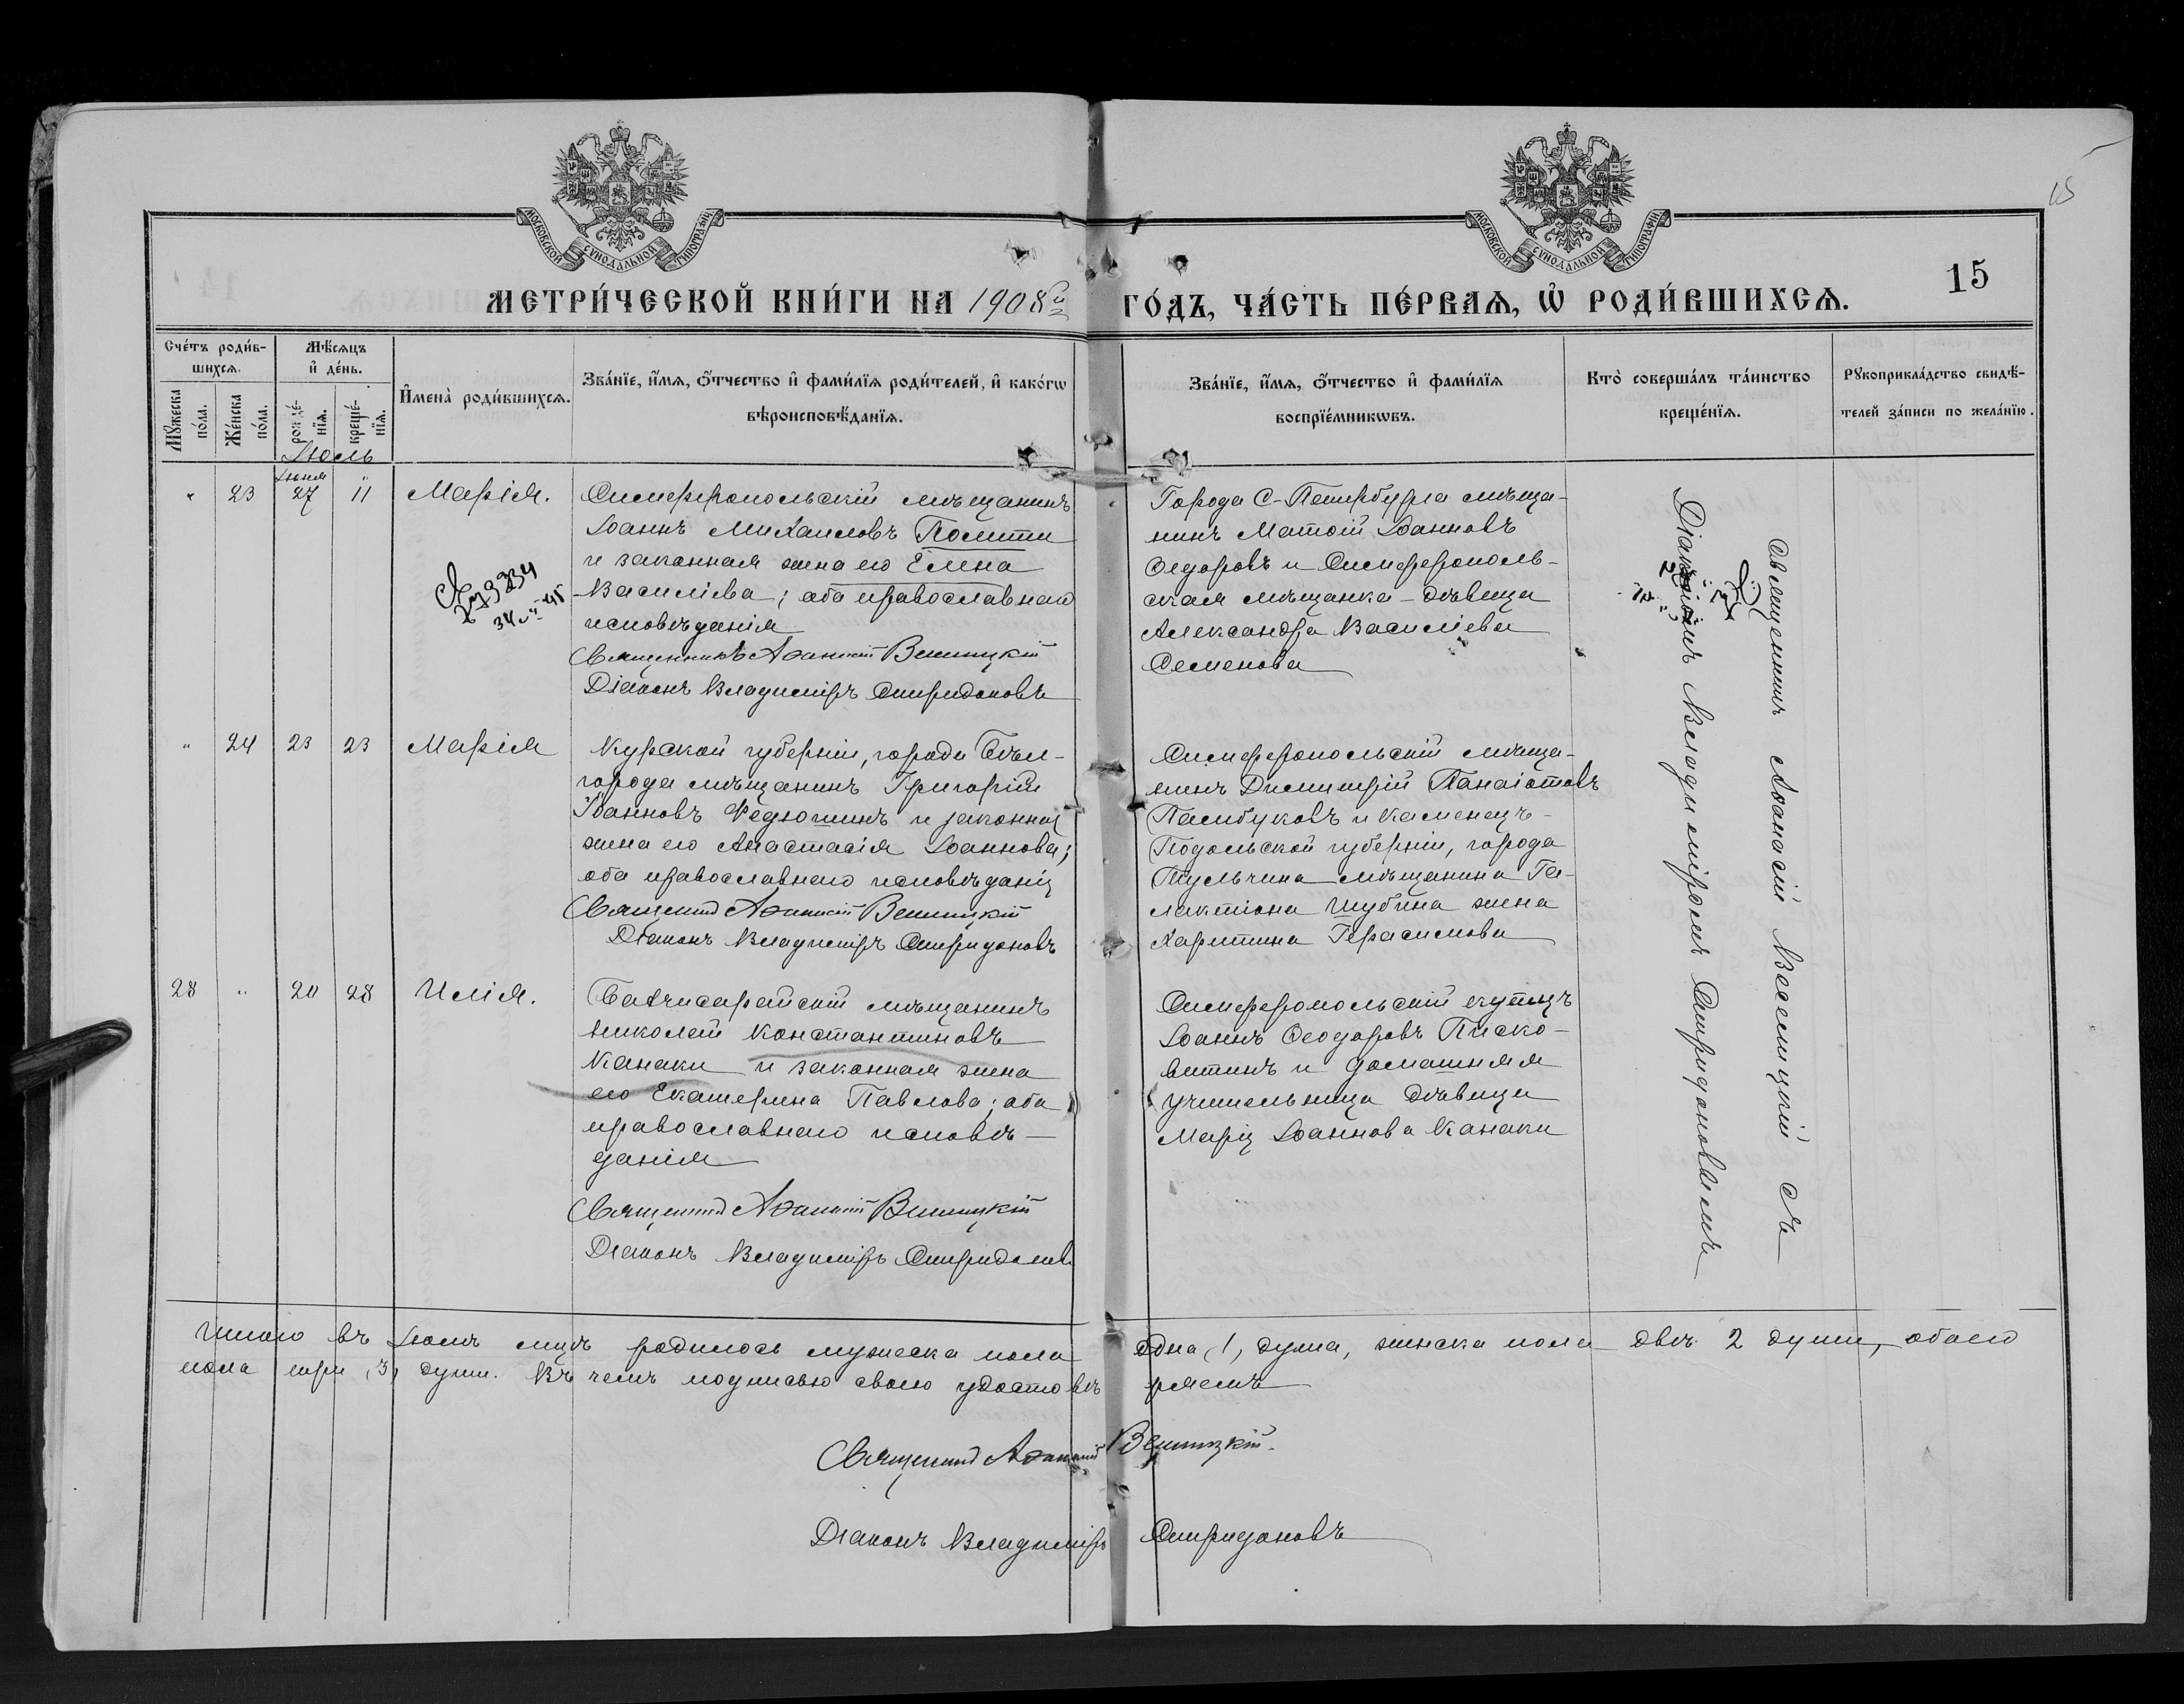 МОСКОВСКОЙ СѴНОДАЛЬНОЙ ТИПОГРАФІИ
МОСКОВСКОЙ СѴНОДАЛЬНОЙ ТИПОГРАФІИ
15
15
МЕТРИ́ЧЕСКОЙ КНИ́ГИ НА 1908й
ГО́ДЪ, ЧА́СТЬ ПЕ́РВАѦ, Ѡ҆ РОДИ́ВШИХСѦ.
Сче́тъ роди́в-
шихсѧ.
Мꙋ́жеска по́ла.
Же́нска по́ла.
Мѣ́сѧцъ
и҆ де́нь.
рожде́-
нїѧ.
креще́-
нїѧ.
И҆мена̀ роди́вшихсѧ.
Зва́нїе, и҆́мѧ, ѻ҆́тчество и҆ фами́лїѧ роди́телей, и҆ како́гѡ
вѣроисповѣ́данїѧ.
Зва́нїе, и҆́мѧ, ѻ҆́тчество и҆ фами́лїѧ
воспрїе́мникѡвъ.
Кто̀ соверша́лъ та́инство
креще́нїѧ.
Рꙋкоприкла́дство свидѣ́-
телей за́писи по жела́нїю.
Іюль
Іюня
" 23 27 11 Марія.
Симферопольскій мѣщанинъ
Іоаннъ Михаиловъ Полити
и законная жена его Елена
Василіева; оба православнаго
исповѣданія
Священникъ Аѳанасій Веселицкій
Діаконъ Владиміръ Спиридоновъ
Города С-Петербурга мѣща-
нинъ Матѳій Іоанновъ
Ѳедоровъ и Симферополь-
ская мѣщанка-дѣвица
Александра Василіева
Семенова
" 24 23 23 Марія
Курской губерніи, города Бѣл-
города мѣщанинъ Григорій
Іоанновъ Федюшинъ и законная
жена его Анастасія Іоаннова;
оба православнаго исповѣданія
Священник Аѳанасій Веселицкій
Діаконъ Владиміръ Спиридоновъ
Симферопольскій мѣща-
нинъ Димитрій Панаіотовъ
Памбуковъ и Каменецъ-
Подольской губерніи, города
Тульчина мѣщанина Га-
лактіона Шубина жена
Харитина Герасимова
28 " 20 28 Илія.
Бахчисарайскій мѣщанинъ
Николай Константиновъ
Канаки и законная жена
его Екатерина Павлова; оба
православнаго исповѣ-
данія
Священник Аѳанасій Веселицкій
Діаконъ Владиміръ Спиридоновъ
Симферопольскій купецъ
Іоаннъ Ѳеодоровъ Писко-
витинъ и домашняя
учительница дѣвица
Марія Іоаннова Канаки
Священникъ Аѳанасій Веселицкій съ
Діакономъ Владиміромъ Спиридоновымъ
Итого въ Іюлѣ мцѣ родилось мужеска пола одна (1) душа, женска пола двѣ 2 души, обоего
пола три (3) души. Въ чемъ подписью своею удостовѣряемъ
Священник Аѳанасій Веселицкій.
Діаконъ Владиміръ Спиридоновъ